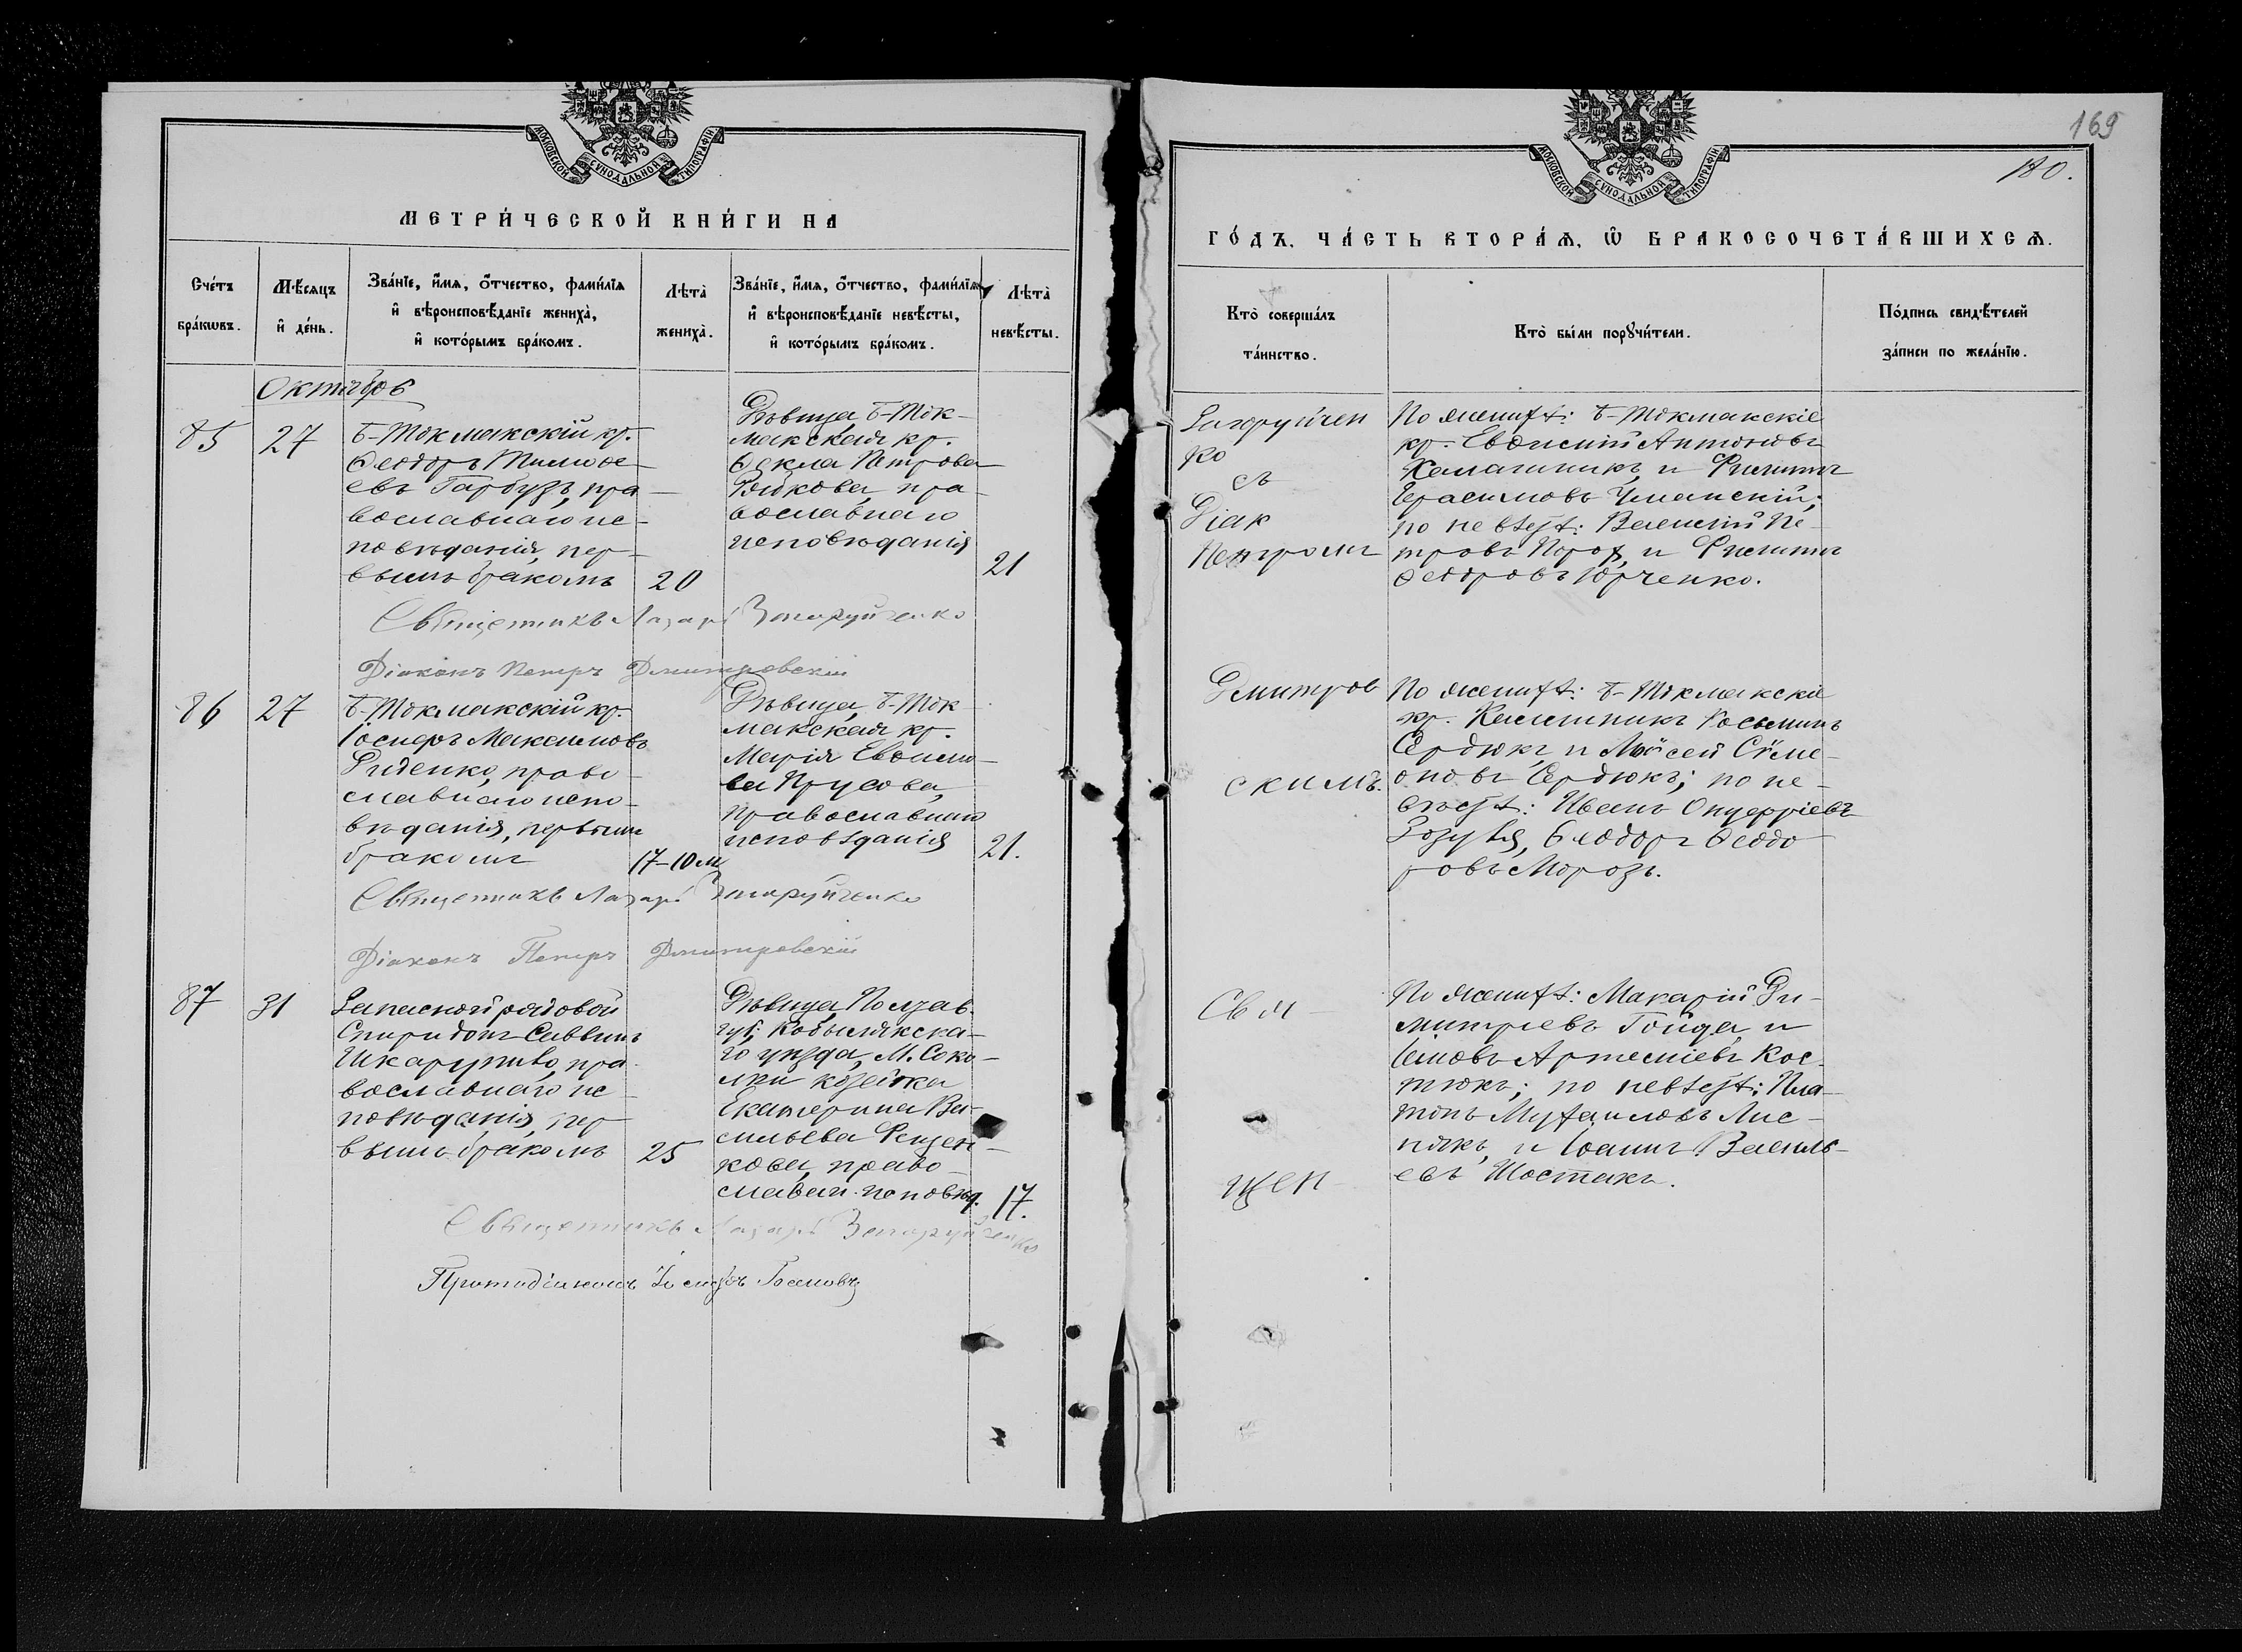 МОСКОВСКОЙ СѴНОДАЛЬНОЙ ТИПОГРАФІИ
МЕТРИ́ЧЕСКОЙ КНИ́ГИ НА
Сче́тъ бра́кѡвъ.
Мѣ́сяцъ и҆ де́нь.
Зва́нїе, и҆́мя, ѻ҆́тчество, фами́лїя
и҆ вѣроисповѣ́данїе жениха̀,
и҆ кото́рымъ бра́комъ.
Лѣта̀ жениха̀.
Зва́нїе, и҆́мя, ѻ҆́тчество, фами́лїя
и҆ вѣроисповѣ́данїе невѣ́сты,
и҆ кото́рымъ бра́комъ.
Лѣта̀ невѣ́сты.
Октябрь
85
27
Б-Токмакскій кр.
Ѳеодоръ Тимоѳе-
евъ Гарбузъ, пра-
вославнаго ис-
повѣданія, пер-
вымъ бракомъ
20
Дѣвица, Б-Ток-
макская кр.
Ѳекла Петрова
православнаго
исповѣданія
21
Священникъ Лазарь Загоруйченко
Діаконъ Петръ Дмитровскій
86
27
Б-Токмакскій кр.
Іосифъ Максимовъ
Руденко, право-
славнаго испо-
вѣданія, первымъ
бракомъ
17-10 м
Дѣвица, Б-Ток
макская кр.
Марія Евѳимо-
ва Прусова,
православнаго
исповѣданія
21.
Священникъ Лазарь Загоруйченко
Діаконъ Петръ Дмитровскій
87
31
Запасной рядовой
Спиридонъ Саввинъ
пра-
вославнаго ис-
повѣданія, пер-
вымъ бракомъ
25
Дѣвица, Полтав.
губ. Кобылякска-
го уѣзда, М. Соко-
лки козачка
Екатерина Ва-
сильева
право-
славн. исповѣд.
17.
Священникъ Лазарь Загоруйченко
Протодіаконъ Іосифъ
169
180.
МОСКОВСКОЙ СѴНОДАЛЬНОЙ ТИПОГРАФІИ
ГО́ДЪ, ЧА́СТЬ ВТОРА́Ѧ, Ѡ҆ БРАКОСОЧЕТА́ВШИХСѦ.
Кто̀ соверша́лъ та́инство.
Кто̀ бы́ли порꙋчи́тели.
По́дпись свидѣ́телей
за́писи по жела́нїю.
Загоруйчен
ко
съ
Діак
Петромъ
По женихѣ: Б-Токмакскіе
кр. Евѳимій Антоновъ
Калашникъ, и Филиппъ
Герасимовъ Уманскій;
по невѣстѣ: Василій Пе-
тровъ Порох, и Филиппъ
Ѳеодоровъ Юрченко.
Дмитров
скимъ.
По женихѣ: Б-Токмакскіе
кр. Каллиникъ Косьминъ
Сердюкъ, и Моѵсей Сѵме-
оновъ Сердюкъ; по не-
вѣстѣ: Иванъ Онуфріевъ
Ѳеодоръ Ѳеодо
ровъ Морозъ.
Свя
щен
По женихѣ: Макарій Ди-
митріевъ Гойда, и
Артеміевъ Кос-
тюкъ; по невѣстѣ: Пла-
тонъ Михаиловъ Лис-
някъ, и Іоаннъ Василь-
евъ Шостакъ.